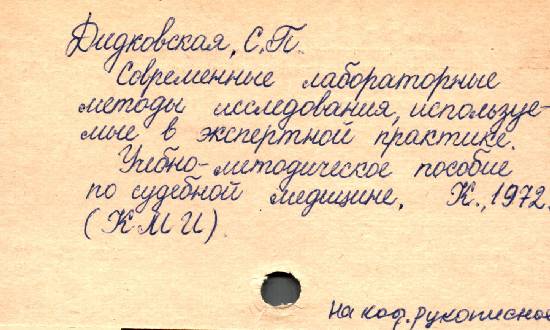 Дидковская, С.П.
Современные лабораторные
методы исследования, используе-
мые в экспертной практике.
Учебно-методическое пособие
по судебной медицине. К., 1972.
(КМИ).
На каф. рукописное